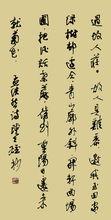 過故人莊 故人具雞黍邀我至田家
綠樹村邊合青山郭外斜開軒面場
圃把酒話桑麻待到重陽日還來
就菊花 孟浩然詩